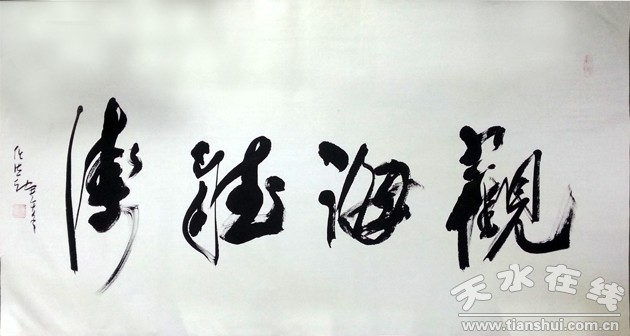 觀海聽濤
天水在线
www.tianshui.com.cn